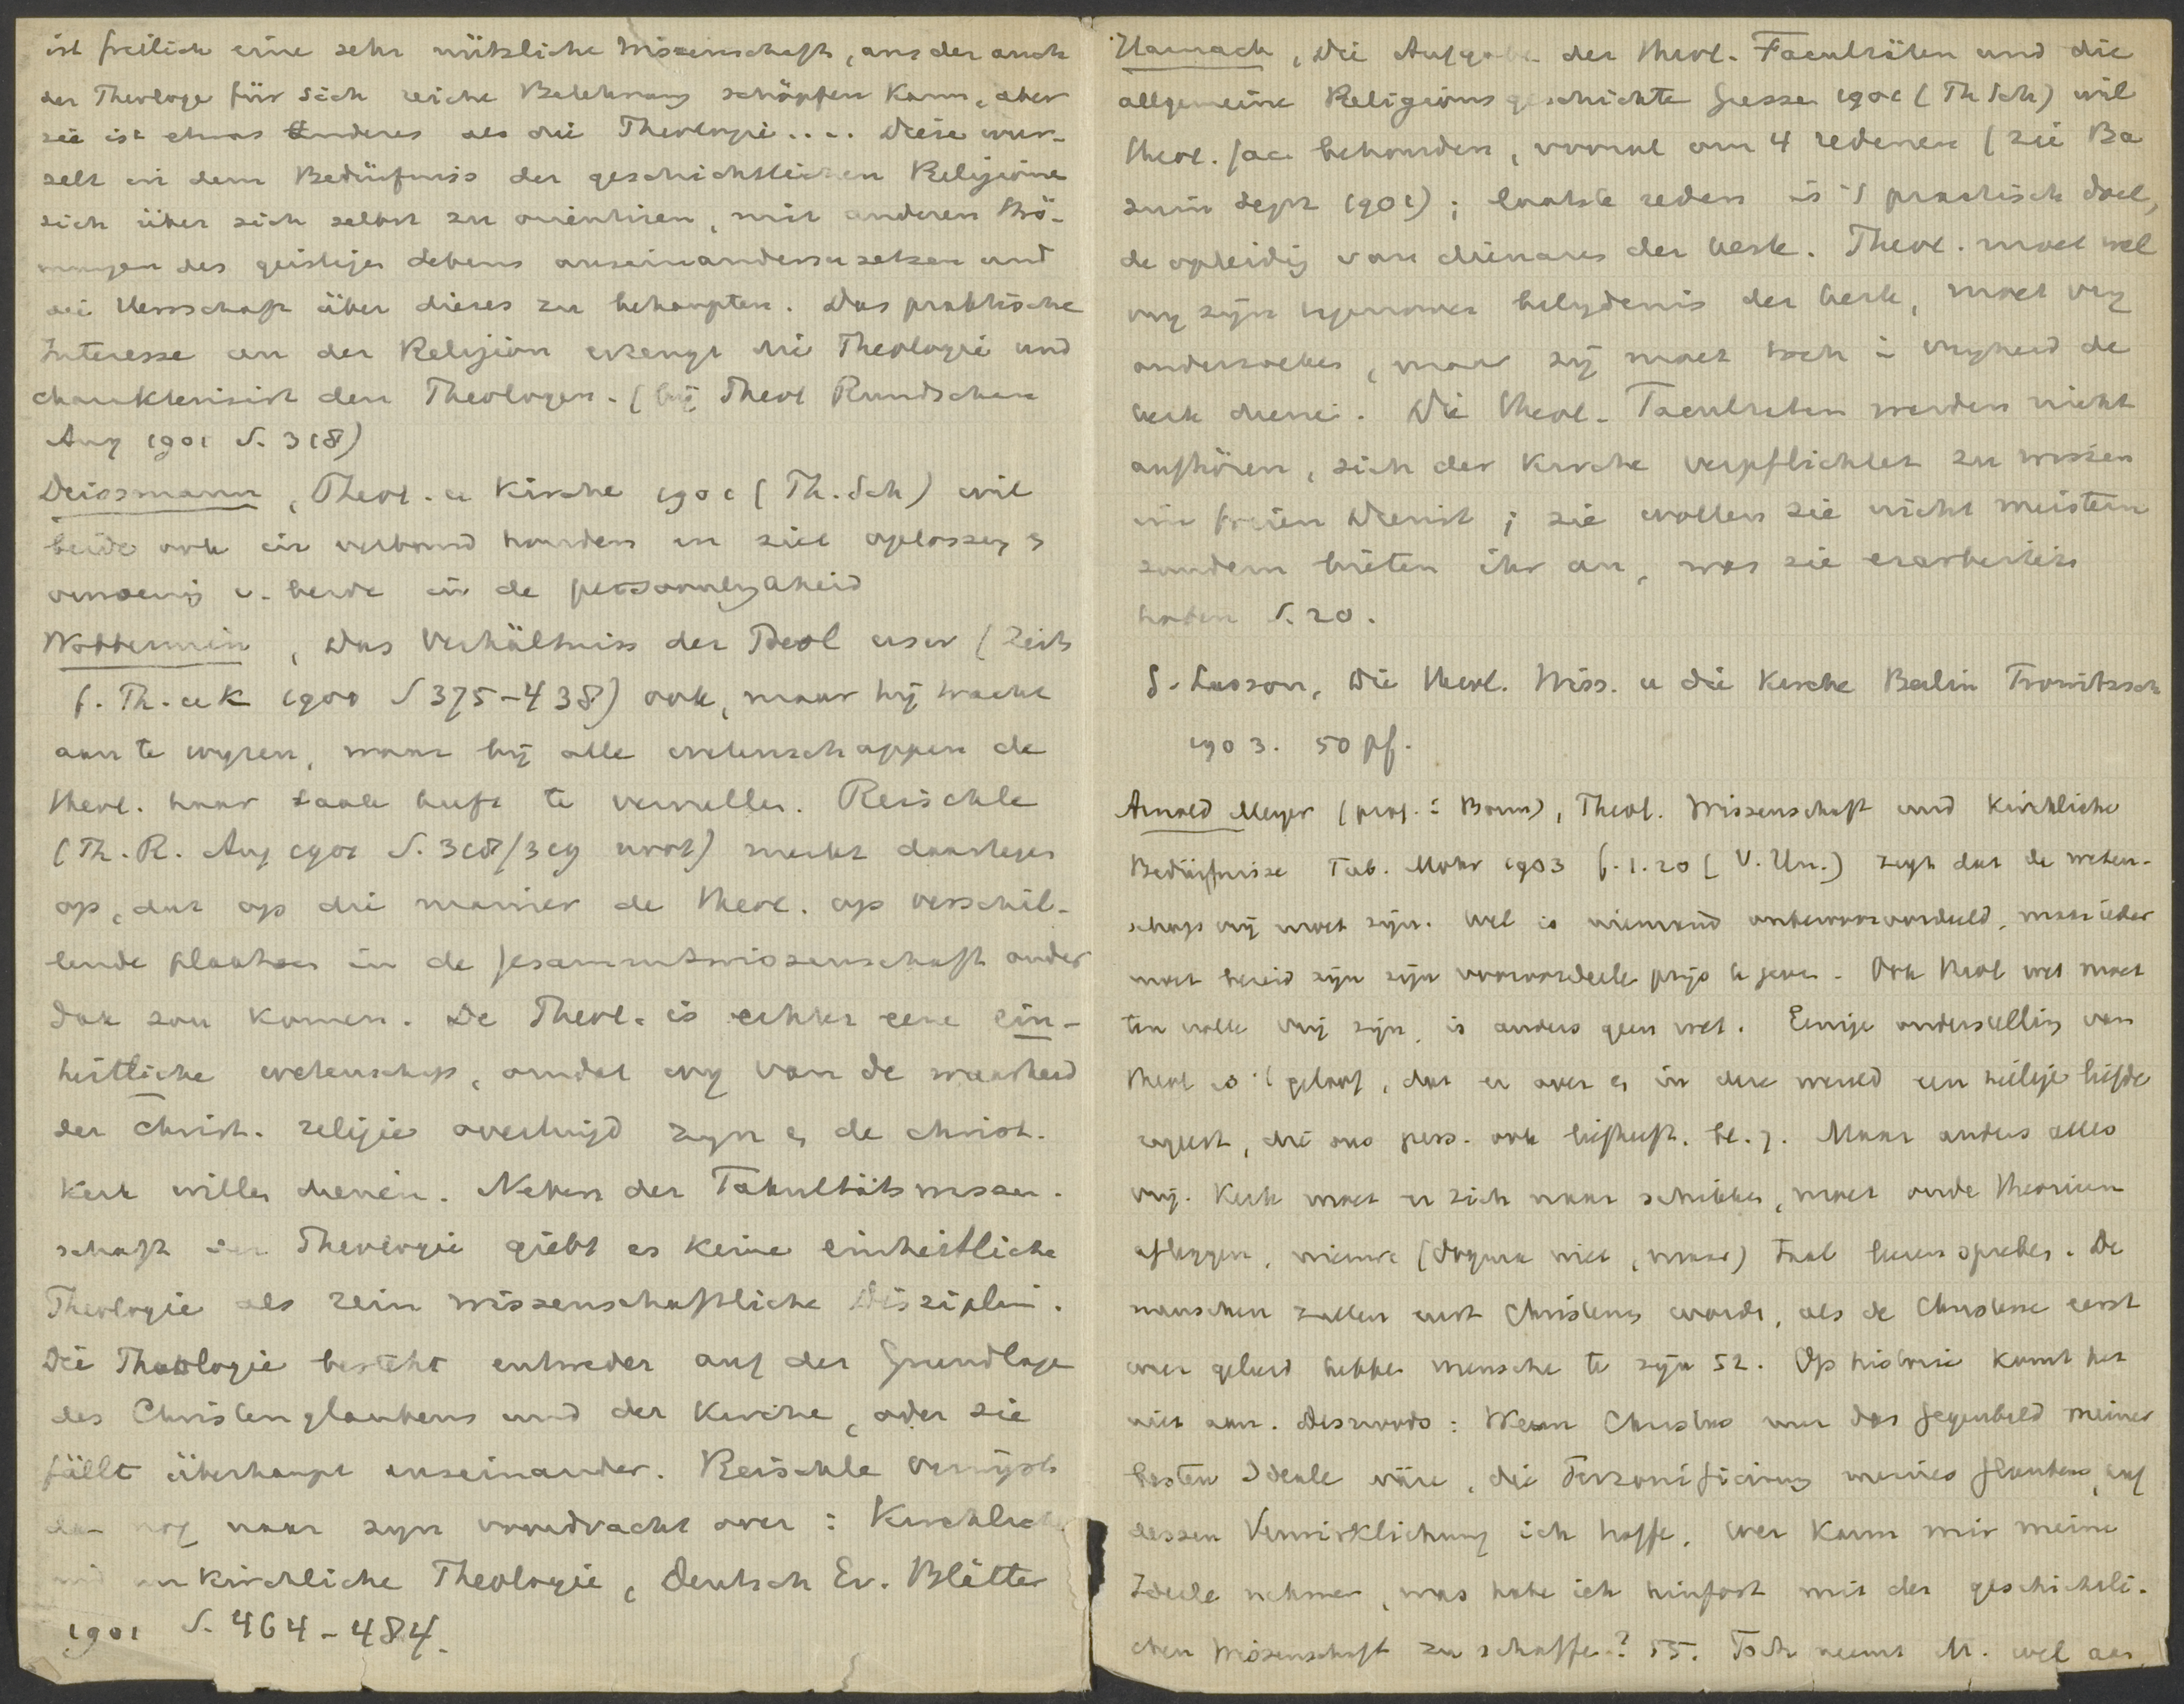 ist freilich eine sehr nützliche Wissenschaft, aus der auch
der Theologe für sich reiche Belehrung schöpfen kann, aber
sie ist etwas Anderes als die Theologie.... Diese wur-
zelt in dem Bedürfniss der geschichtlichen Religionen
sich über sich selbst zu orientiren, mit anderen Strö-
mungen des geistigen Lebens auseinanderzusetzen und
die Herrschaft über dieses zu behaupten. Das praktische
Interesse an der Religion erzeugt die Theologie und
charakterisirt den Theologen. (bij Theol Rundschau
Aug 1901 S. 318)
Deissmann, Theol. u Kirche 1901 (Th. Sch) wil
beide ook in verband houden en ziet oplossing &
verzoening v. beide in de persoonlijkheid
Wobbermin, Das Verhältniss der Theol usw (Zeits
f. Th. u K 1900 S 375-438) ook, maar hij tracht
aan te wijzen, waar bij alle wetenschappen de
theol. haar taak heeft te vervullen. Reischle
(Th. R. Aug 1901 S. 318/319 noot) merkt daartegen
op, dat op die manier de theol. op verschil-
lende plaatsen in de Gesammtwissenschaft onder
dak zou komen. De Theol. is echter eene ein-
heitliche wetenschap, omdat wij van de waarheid
der Christ. religie overtuigd zijn & de christ.
Kerk willen dienen. Neben der Fakultätswissen-
schaft der Theologie giebt es keine einheitliche
Theologie als rein wissenschaftliche Disziplin.
Die Theologie besteht entweder auf der Grundlage
des Christenglaubens und der Kirche, oder sie
fällt überhaupt auseinander. Reischle verwijst
dan nog naar zijn voordracht over: Kirchliche
und unkirchliche Theologie, Deutsch Ev. Blätter
1901 S. 464-484.
Harnack, Die Aufgabe der theol. Facultäten und die
allgemeine Religionsgeschichte Giessen 1901 (Th Sch) wil
theol. fac behouden, vooral om 4 redenen (zie Ba
zuin Sept 1901); laatste reden is 't practisch doel,
de opleiding van dienaren der kerk. Theol. moet wel
vrij zijn tegenover belydenis der kerk, moet vrij
onderzoeken, maar zij moet toch in vrijheid de
kerk dienen. Die theol. Facultäten werden nicht
aufhören, sich der Kirche verpflichtet zu wissen
in freien Dienst; sie wollen sie nicht meistern
sondern bieten ihr an, was sie erarbeitet
haben S. 20.
G. Lasson, Die theol. Wiss. u die Kirche Berlin Trowitzsch
1903. 50 pf.
Arnold Meyer (prof. in Bonn), Theol. Wissenschaft und Kirchliche
Bedürfnisse Tüb. Mohr 1903 f. 1.20 (V. Un.) zegt dat de weten-
schap vrij moet zijn. Wel is niemand onbevooroordeeld, maar ieder
moet bereid zijn zijn vooroordeelen prijs te geven. Ook theol wet moet
ten volle vrij zijn, is anders geen wet. Eenige onderstelling van
theol is 't geloof, dat er over & in deze wereld een heilige liefde
regeert, die ons pers. ook liefheeft. bl. 7. Maar anders alles
vrij. Kerk moet er zich naar schikken, moet oude theorieen
afleggen, nieuwe (dogma niet, maar) taal leeren spreken. De
menschen zullen eerst Christenen worden, als de Christenen eerst
weer geleerd hebben menschen te zijn 52. Op historie komt het
niet aan. Desnoods: Wenn Christus nur das Gegenbild meiner
besten Ideale wäre, die Personificirung meines Glaubens, auf
dessen Verwirklichung ich hoffe, wer kann mir meine
Ideale nehmen, was habe ich hinfort mit der geschichtli-
chen Wissenschaft zu schaffen? 55. Toch neemt M. wel aan,